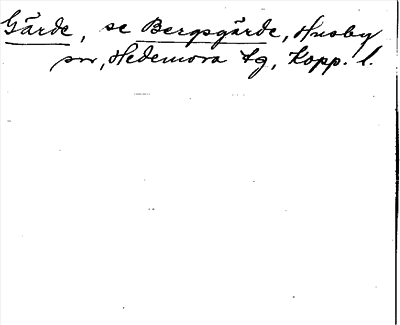 Gärde, se Bergsgärde, Husby
sn, Hedemora tg, Kopp. l.